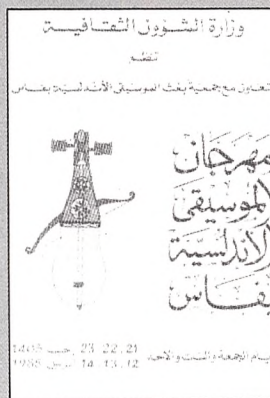 وزارة الشؤون الثقافية
تنظم
بتعاون مع جمعية بعث الموسيقى الأندلسية بفاس
مهرجان
الموسيقى
الأندلسية
بفاس
أيام الجمعة والسبت والأحد
21 .22 .23 رجب 1405
12 .13 .14 أبريل 1985